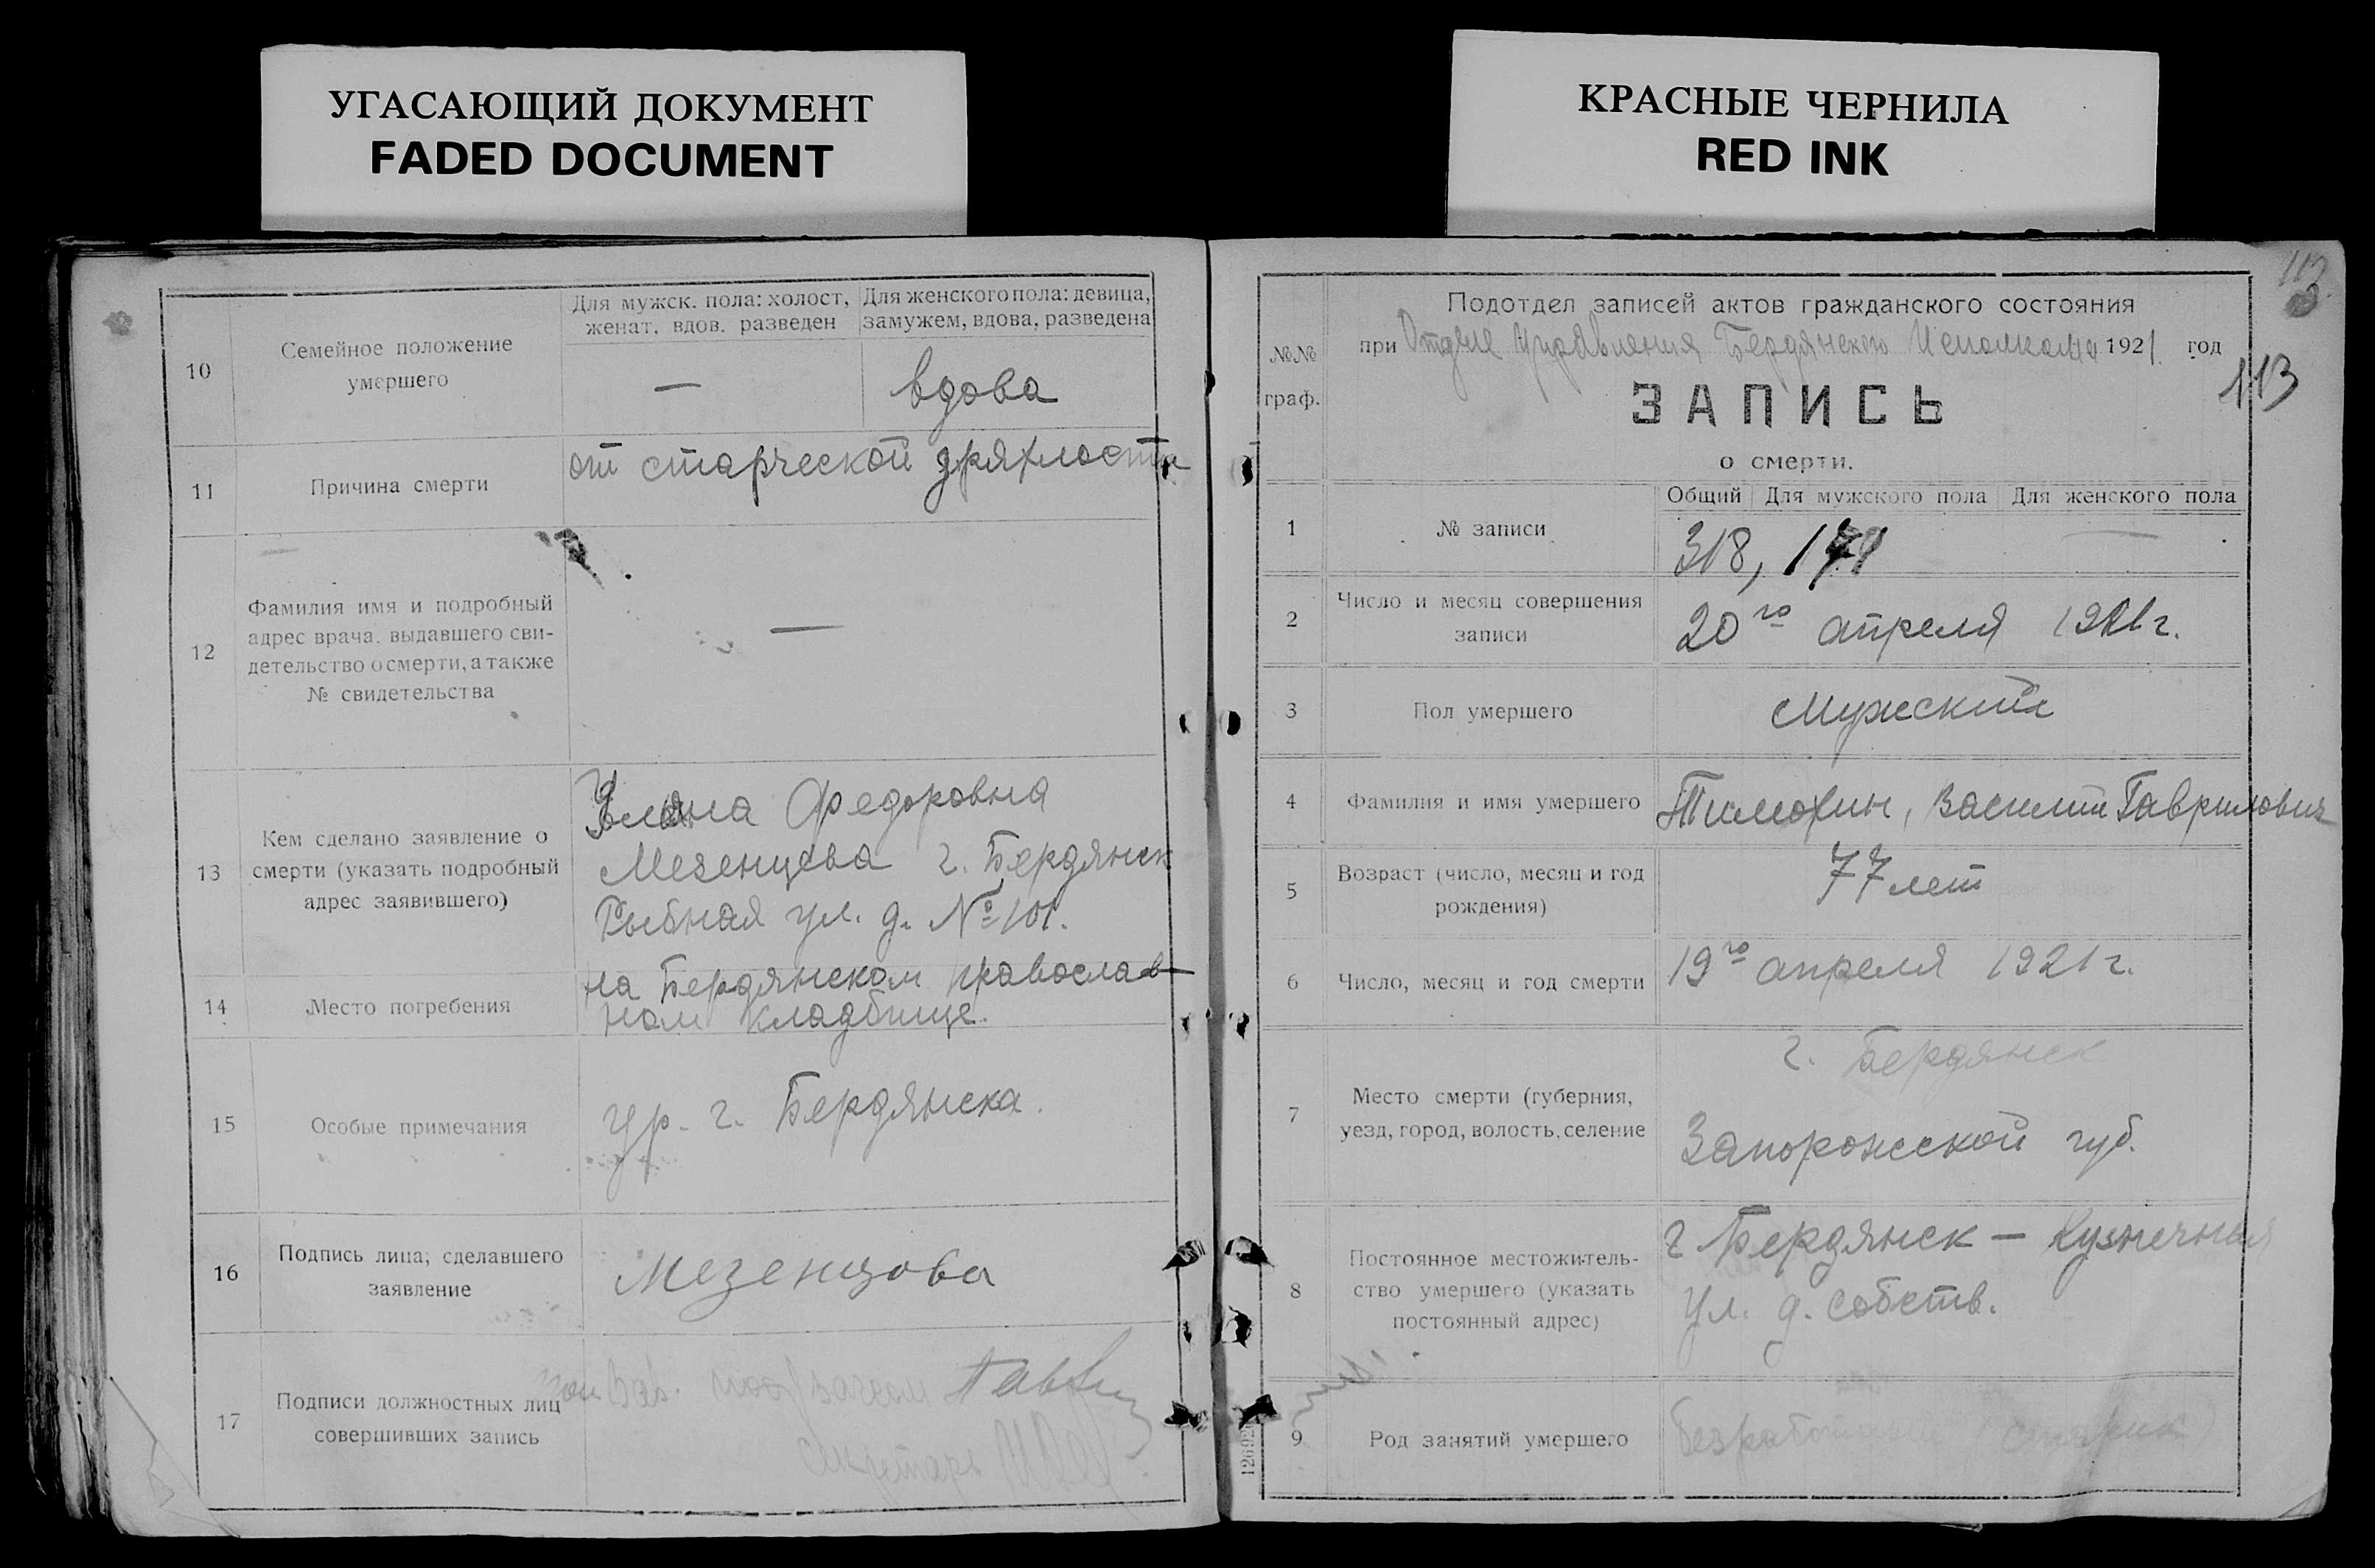 УГАСАЮЩИЙ ДОКУМЕНТ
FADED DOCUMENT
КРАСНЫЕ ЧЕРНИЛА
RED INK
10
Семейное положение
умершего
Для мужск. пола: холост,
женат, вдов. разведен
Для женского пола: девица,
замужем, вдова, разведена
—
вдова
11
Причина смерти
от старческой дряхлости
12
Фамилия имя и подробный
адрес врача, выдавшего сви-
детельство о смерти, а также
№ свидетельства
—
13
Кем сделано заявление о
смерти (указать подробный
адрес заявившего)
Федоровна
Мезенцева г. Бердянск
Рыбная ул. д. № 101.
14
Место погребения
на Бердянском православ-
ном кладбище.
15
Особые примечания
ур. г. Бердянска.
16
Подпись лица, сделавшего
заявление
Мезенцова
17
Подписи должностных лиц
совершивших запись
Зав.
Секретарь
113
113
№№
граф.
Подотдел записей актов гражданского состояния
при Отделе Управления Бердянского Исполкома 1921 год
ЗАПИСЬ
о смерти.
1
№ записи
Общий
Для мужского пола
Для женского пола
318,
—
2
Число и месяц совершения
записи
20го апреля 1921 г.
3
Пол умершего
Мужский
4
Фамилия и имя умершего
Тимохин, Василий Гаврилович
5
Возраст (число, месяц и год
рождения)
77 лет
6
Число, месяц и год смерти
19го апреля 1921 г.
7
Место смерти (губерния,
уезд, город, волость, селение
г. Бердянск
Запорожской губ.
8
Постоянное местожитель-
ство умершего (указать
постоянный адрес)
г Бердянск — Кузнечная
ул. д. собств.
9
Род занятий умершего
старик